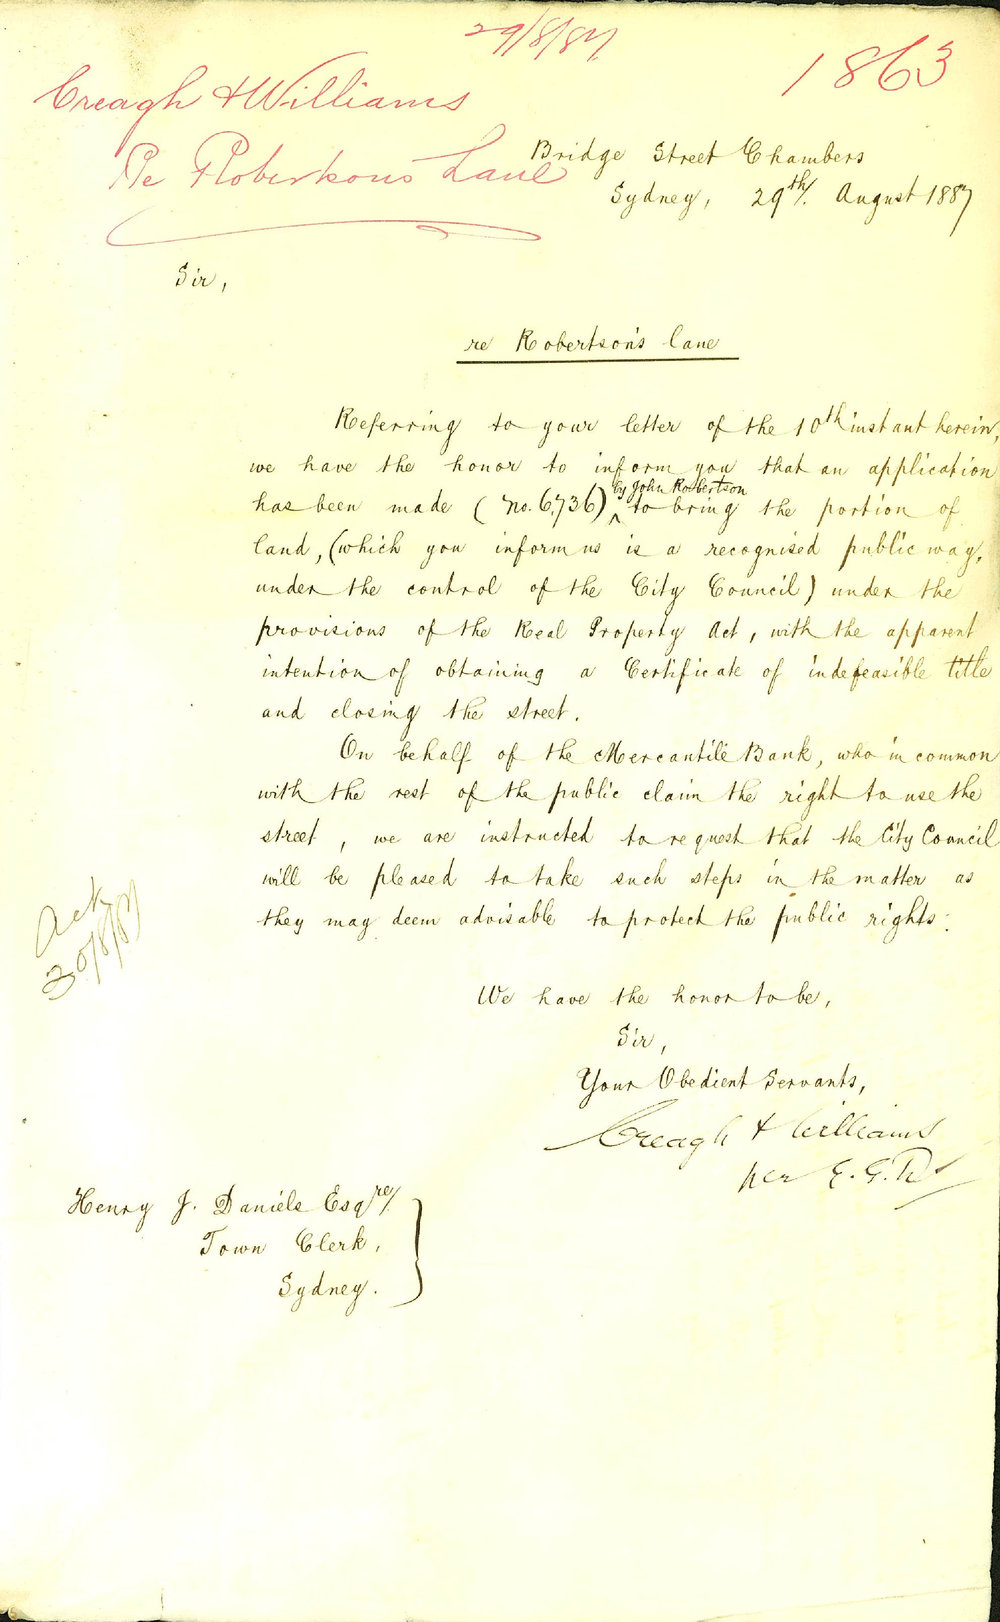 29/8/87
1863
Creagh & Williams
Re Robertsons Lane
Bridge Street Chambers
Sydney, 29th August 1887
Sir,
re Robertson's lane
Referring to your letter of the 10th instant herein,
we have the honor to inform you that an application
has been made (No. 6,736) by John Robertson to bring the portion of
land, (which you inform us is a recognised public way,
under the control of the City Council) under the
provisions of the Real Property Act, with the apparent
intention of obtaining a Certificate of indefeasible title
and closing the street.
On behalf of the Mercantile Bank, who in common
with the rest of the public claim the right to use the
street, we are instructed to request that the City Council
will be pleased to take such steps in the matter as
they may deem advisable to protect the public rights.
Ack
30/8/87
We have the honor to be,
Sir,
Your Obedient Servants,
Creagh & Williams
per E. G.
Henry J. Daniels Esqre/
Town Clerk,
Sydney.